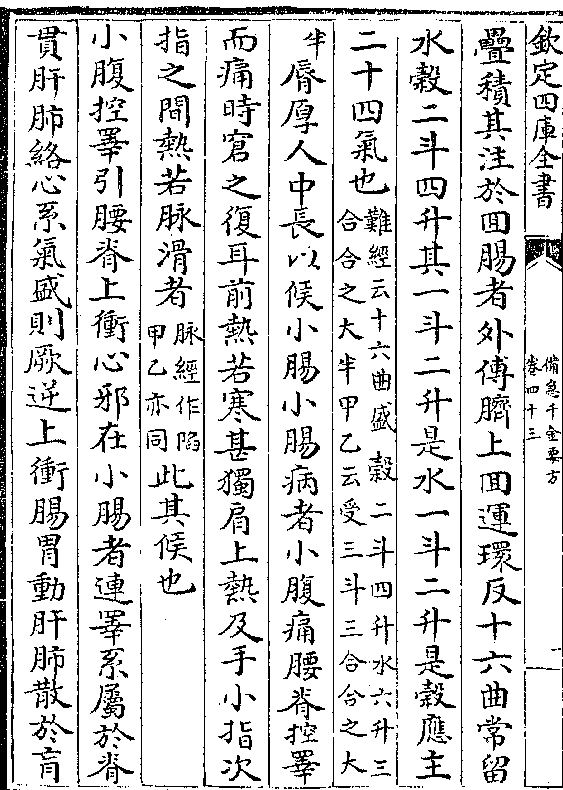 欽定四庫全書
備急千金要方
卷四十三
疊積其注於囬腸者外傅臍上囬運環反十六曲常留
水穀二斗四升其一斗二升是水一斗二升是穀應主
二十四氣也難經云十六曲盛穀二斗四升水六升三
合合之大半甲乙云受三斗三合合之大
半脣厚人中長以候小腸小腸病者小腹痛腰脊控睪
而痛時窘之復耳前熱若寒甚獨肩上熱及手小指次
指之間熱若脉滑者脉經作陷
甲乙亦同此其候也
小腹控睪引腰脊上衝心邪在小腸者連睪系屬於脊
貫肝肺絡心系氣盛則厥逆上衝腸胃動肝肺散於肓